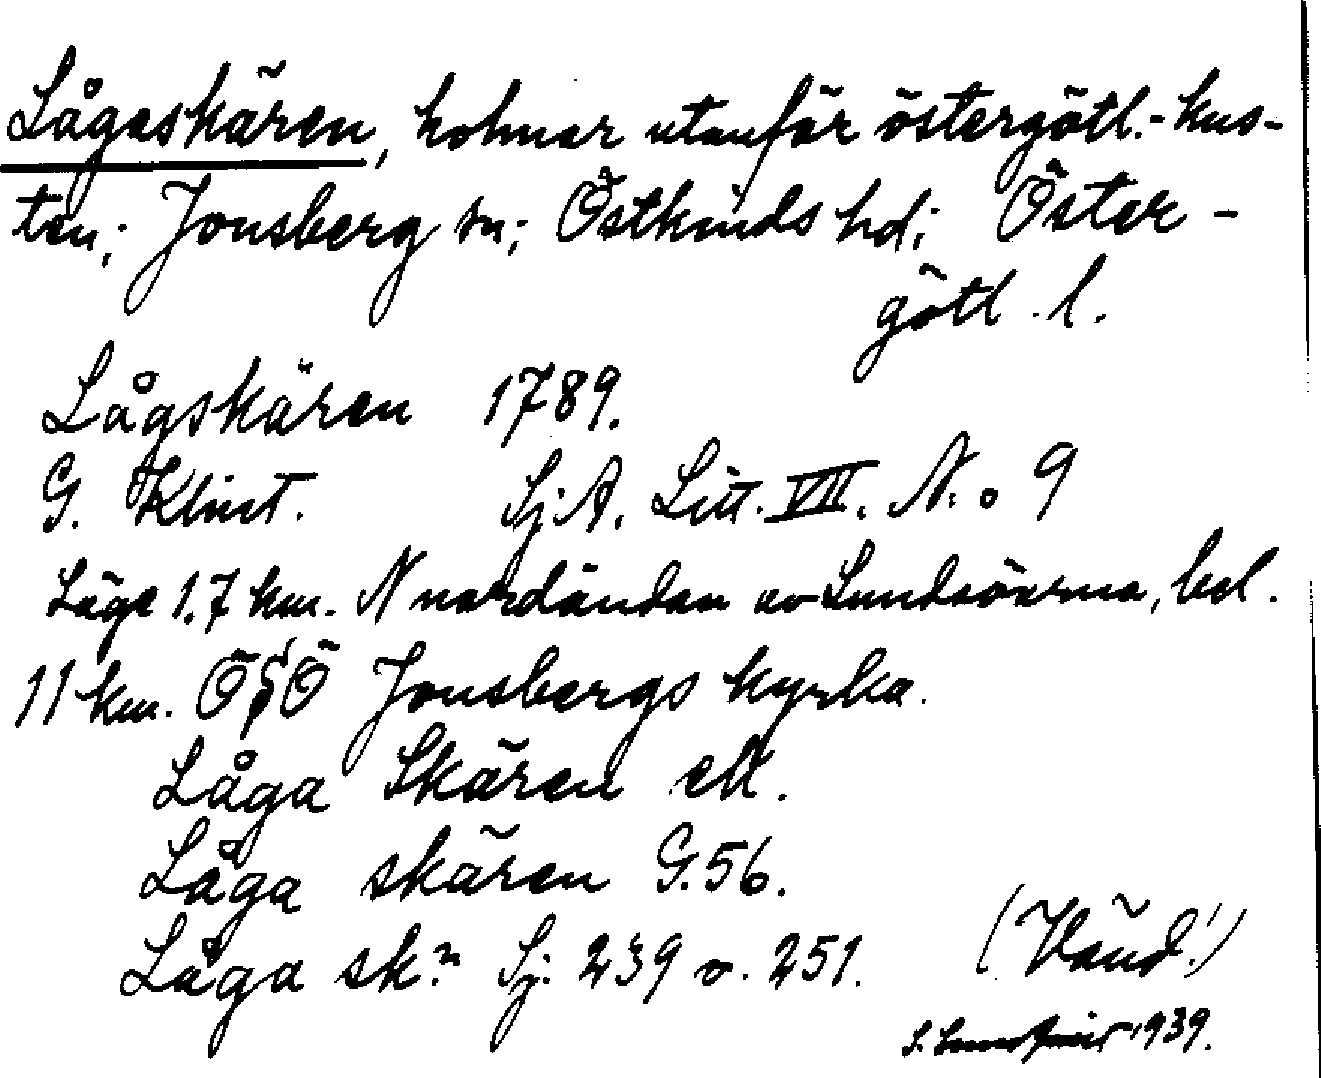 Lågaskären, holmar utanför östergötl.-kus-
ten; Jonsberg sn; Östkinds hd; Öster-
götl. l.
Lågskären 1789.
G. Klint. Sj.A. Litt. VII. N.o 9
Läge 1,7 km. N nordändan av Lundaöarna, bel.
11 km. OSO Jonsbergs kyrka.
Låga Skären ek.
Låga skären G.56.
Låga sk:n Sj. 239 o. 251.
(Vänd!)
S. 1939.